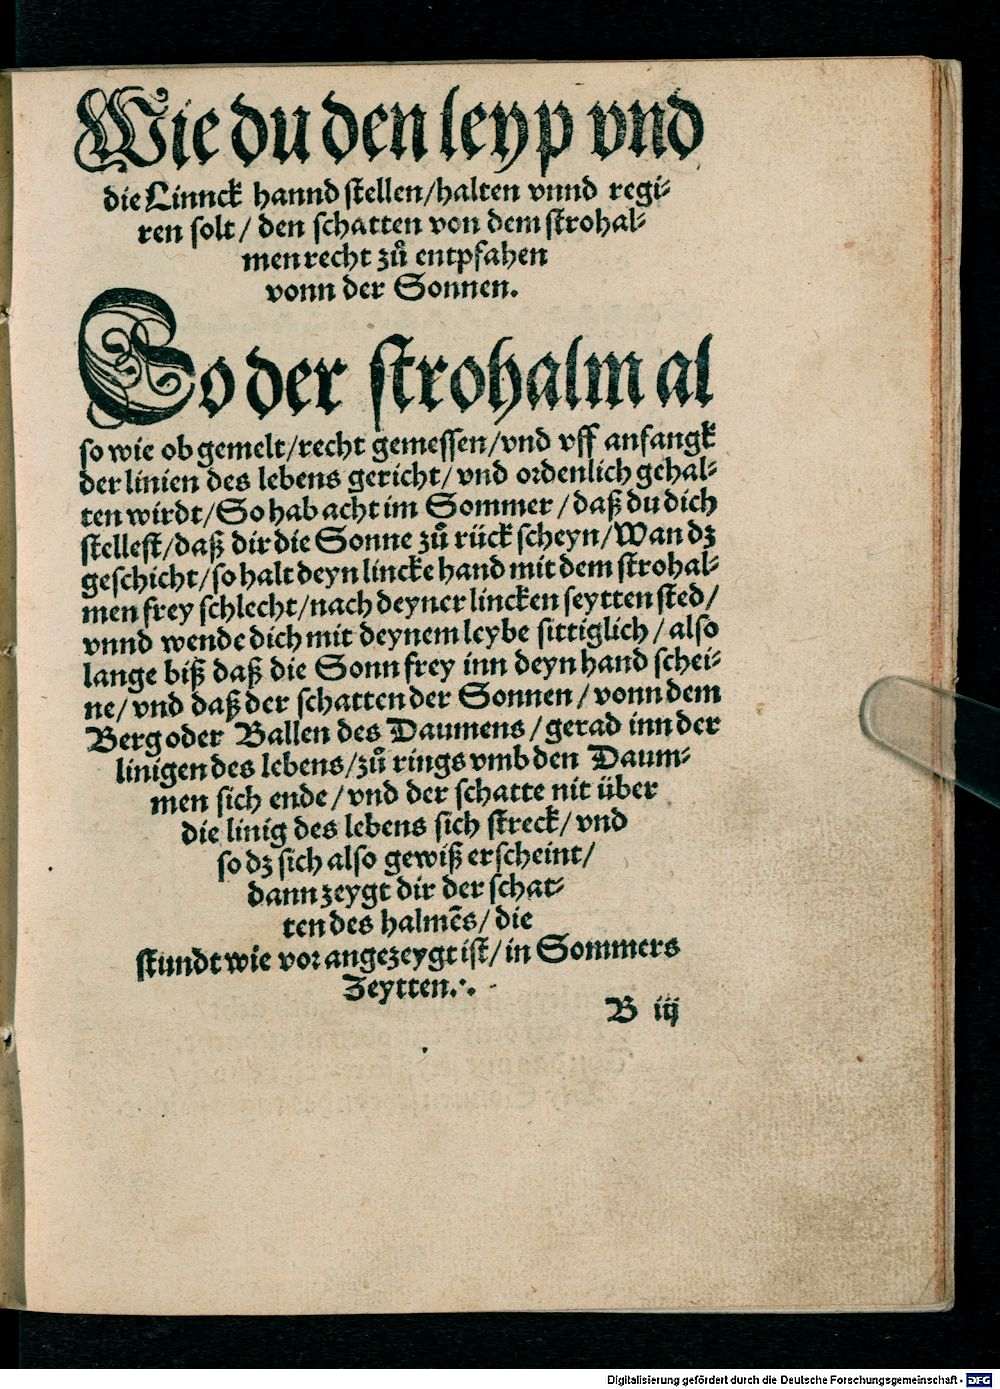 Wie du den leyp vnd
die Linnck hannd stellen/halten vnnd regi⸗
ren solt/ den schatten von dem strohal⸗
men recht zuͦ entpfahen
vonn der Sonnen.
So der strohalm al
so wie ob gemelt/recht gemessen/vnd vff anfangk
der linien des lebens gericht/ vnd ordenlich gehal⸗
ten wirdt/So hab acht im Sommer/daß du dich
stellest/daß dir die Sonne zuͦ rück scheyn/Wan dz
geschicht/so halt deyn lincke hand mit dem strohal⸗
men frey schlecht/nach deyner lincken seytten sted/
vnnd wende dich mit deynem leybe sittiglich/also
lange biß daß die Sonn frey inn deyn hand schei⸗
ne/ vnd daß der schatten der Sonnen/ vonn dem
Berg oder Ballen des Daumens/gerad inn der
linigen des lebens/zuͦ rings vmb den Daum⸗
men sich ende/vnd der schatte nit über
die linig des lebens sich streck/ vnd
so dz sich also gewiß erscheint/
dann zeygt dir der schat⸗
ten des halmēs/ die
stundt wie vor angezeygt ist/ in Sommers
Zeytten.⁖
B iij
Digitalisierung gefördert durch die Deutsche Forschungsgemeinschaft - DFG